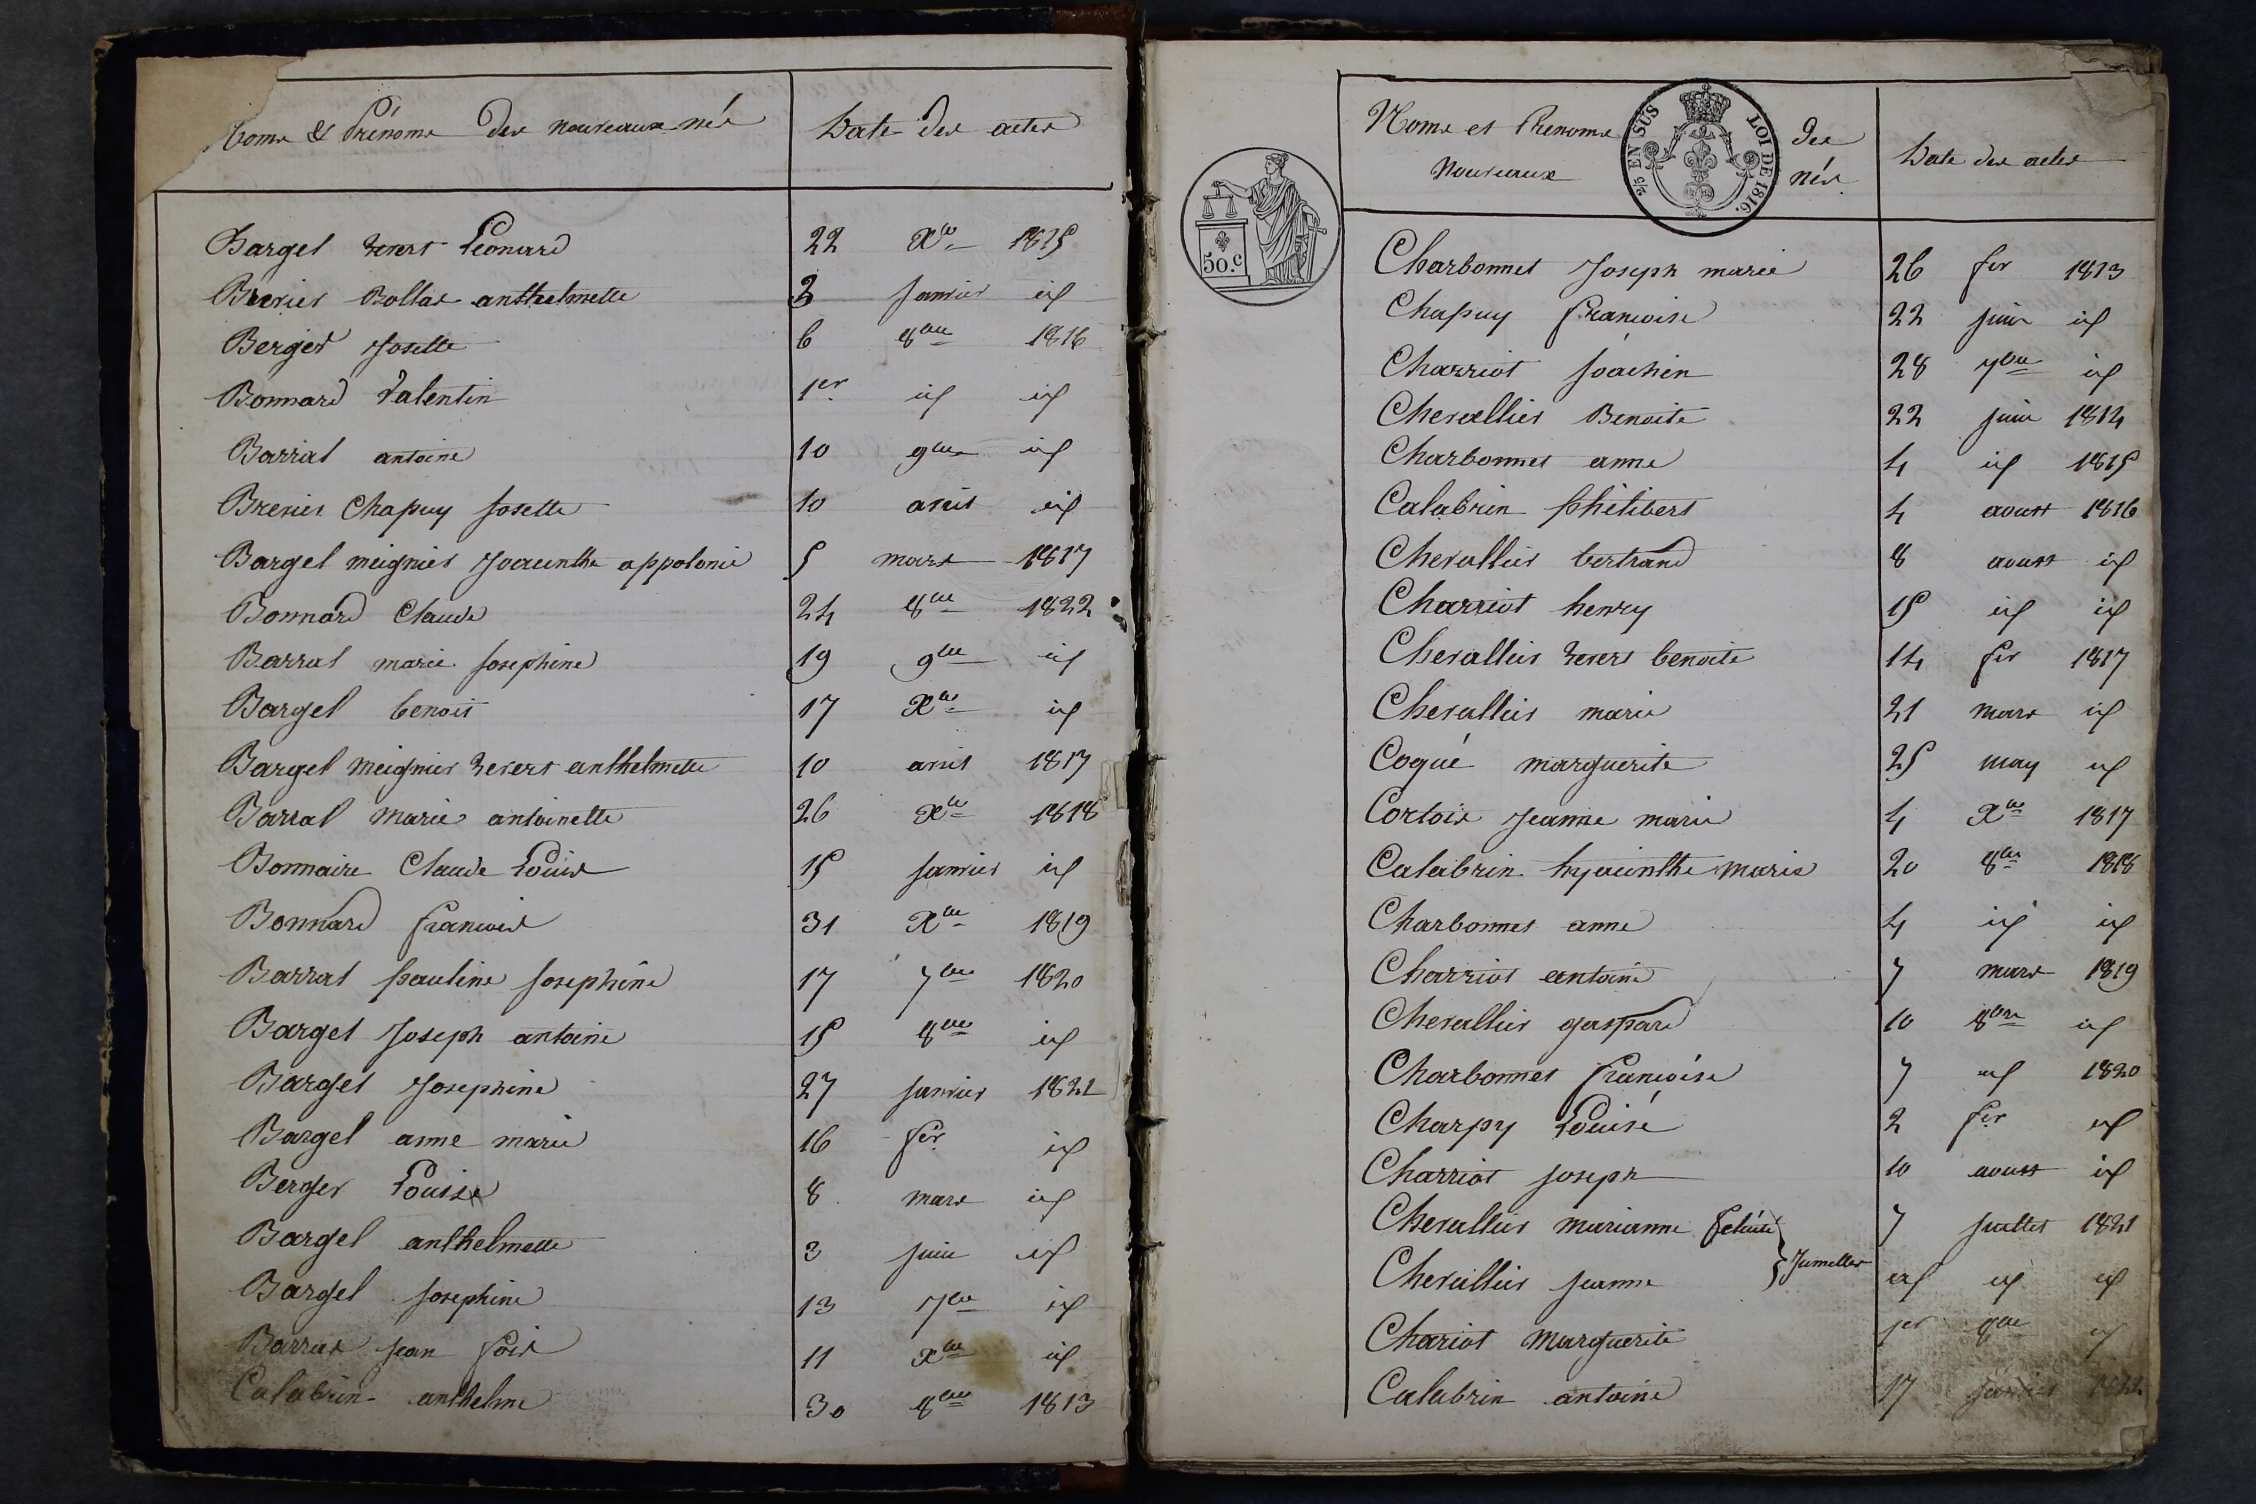 Noms & Prénoms des nouveaux nés Date des actes
Bargel revert Léonard 22 Xbre 1815
Brevier Bollas anthelmette 2 janvier id
Berger Josette 6 8bre 1816
Bonnard Valentin 1er id id
Barrat antoine 10 9bre id
Brevier Chapuy Josette 10 avril id
Bargel meignier Joacinthe appolonie 5 mars 1817
Bonnard Claude 24 8bre 1822
Barrat marie Josephine 19 9bre id
Bargel benoit 17 Xbre id
Bargel meignier revert anthelmette 10 avril 1817
Barrat marie antoinette 26 Xbre 1818
Bonnaire Claude Louis 15 janvier id
Bonnard francois 31 Xbre 1819
Barrat pauline Josephine 17 7bre 1820
Bargel Joseph antoine 15 8bre id
Bargel Josephine 27 janvier 1821
Bargel anne marie 16 fer id
Berger Louise 8 mars id
Bargel anthelmette 3 juin id
Bargel Josephine 13 7bre id
Barrat jean 11 Xbre id
Calabrin anthelme 30 8bre 1813
Noms et Prenoms des
nouveaux nés Date des actes
2/5 EN SUS LOI DE 1816.
50.c
Charbonnet Joseph marie 26 fer 1813
Chapuy francoise 22 juin id
Charriot Joachin 28 7bre id
Chevallier Benoite 22 juin 1814
Charbonnet anne 4 id 1815
Calabrin philibert 4 aoust 1816
Chevallier bertrand 8 aoust id
Charriot henry 15 id id
Chevallier revert benoite 14 fer 1817
Chevallier marie 21 mars id
Coqué marguerite 25 may id
Cortois Jeanne marie 4 Xbre 1817
Calabrin hyacinthe marie 20 8bre 1818
Charbonnet anne 4 id id
Charriot antoine 7 mars 1819
Chevallier gaspard 10 8bre id
Charbonnet francoise 7 id 1820
Charpy Louise 2 fer id
Charriot joseph 10 aoust id
Chevallier marianne felicité 7 juillet 1821
} Jumelles
Chevallier jeanne id id id
Chariot Marguerite 1er 8bre id
Calabrin antoine 17 janvier